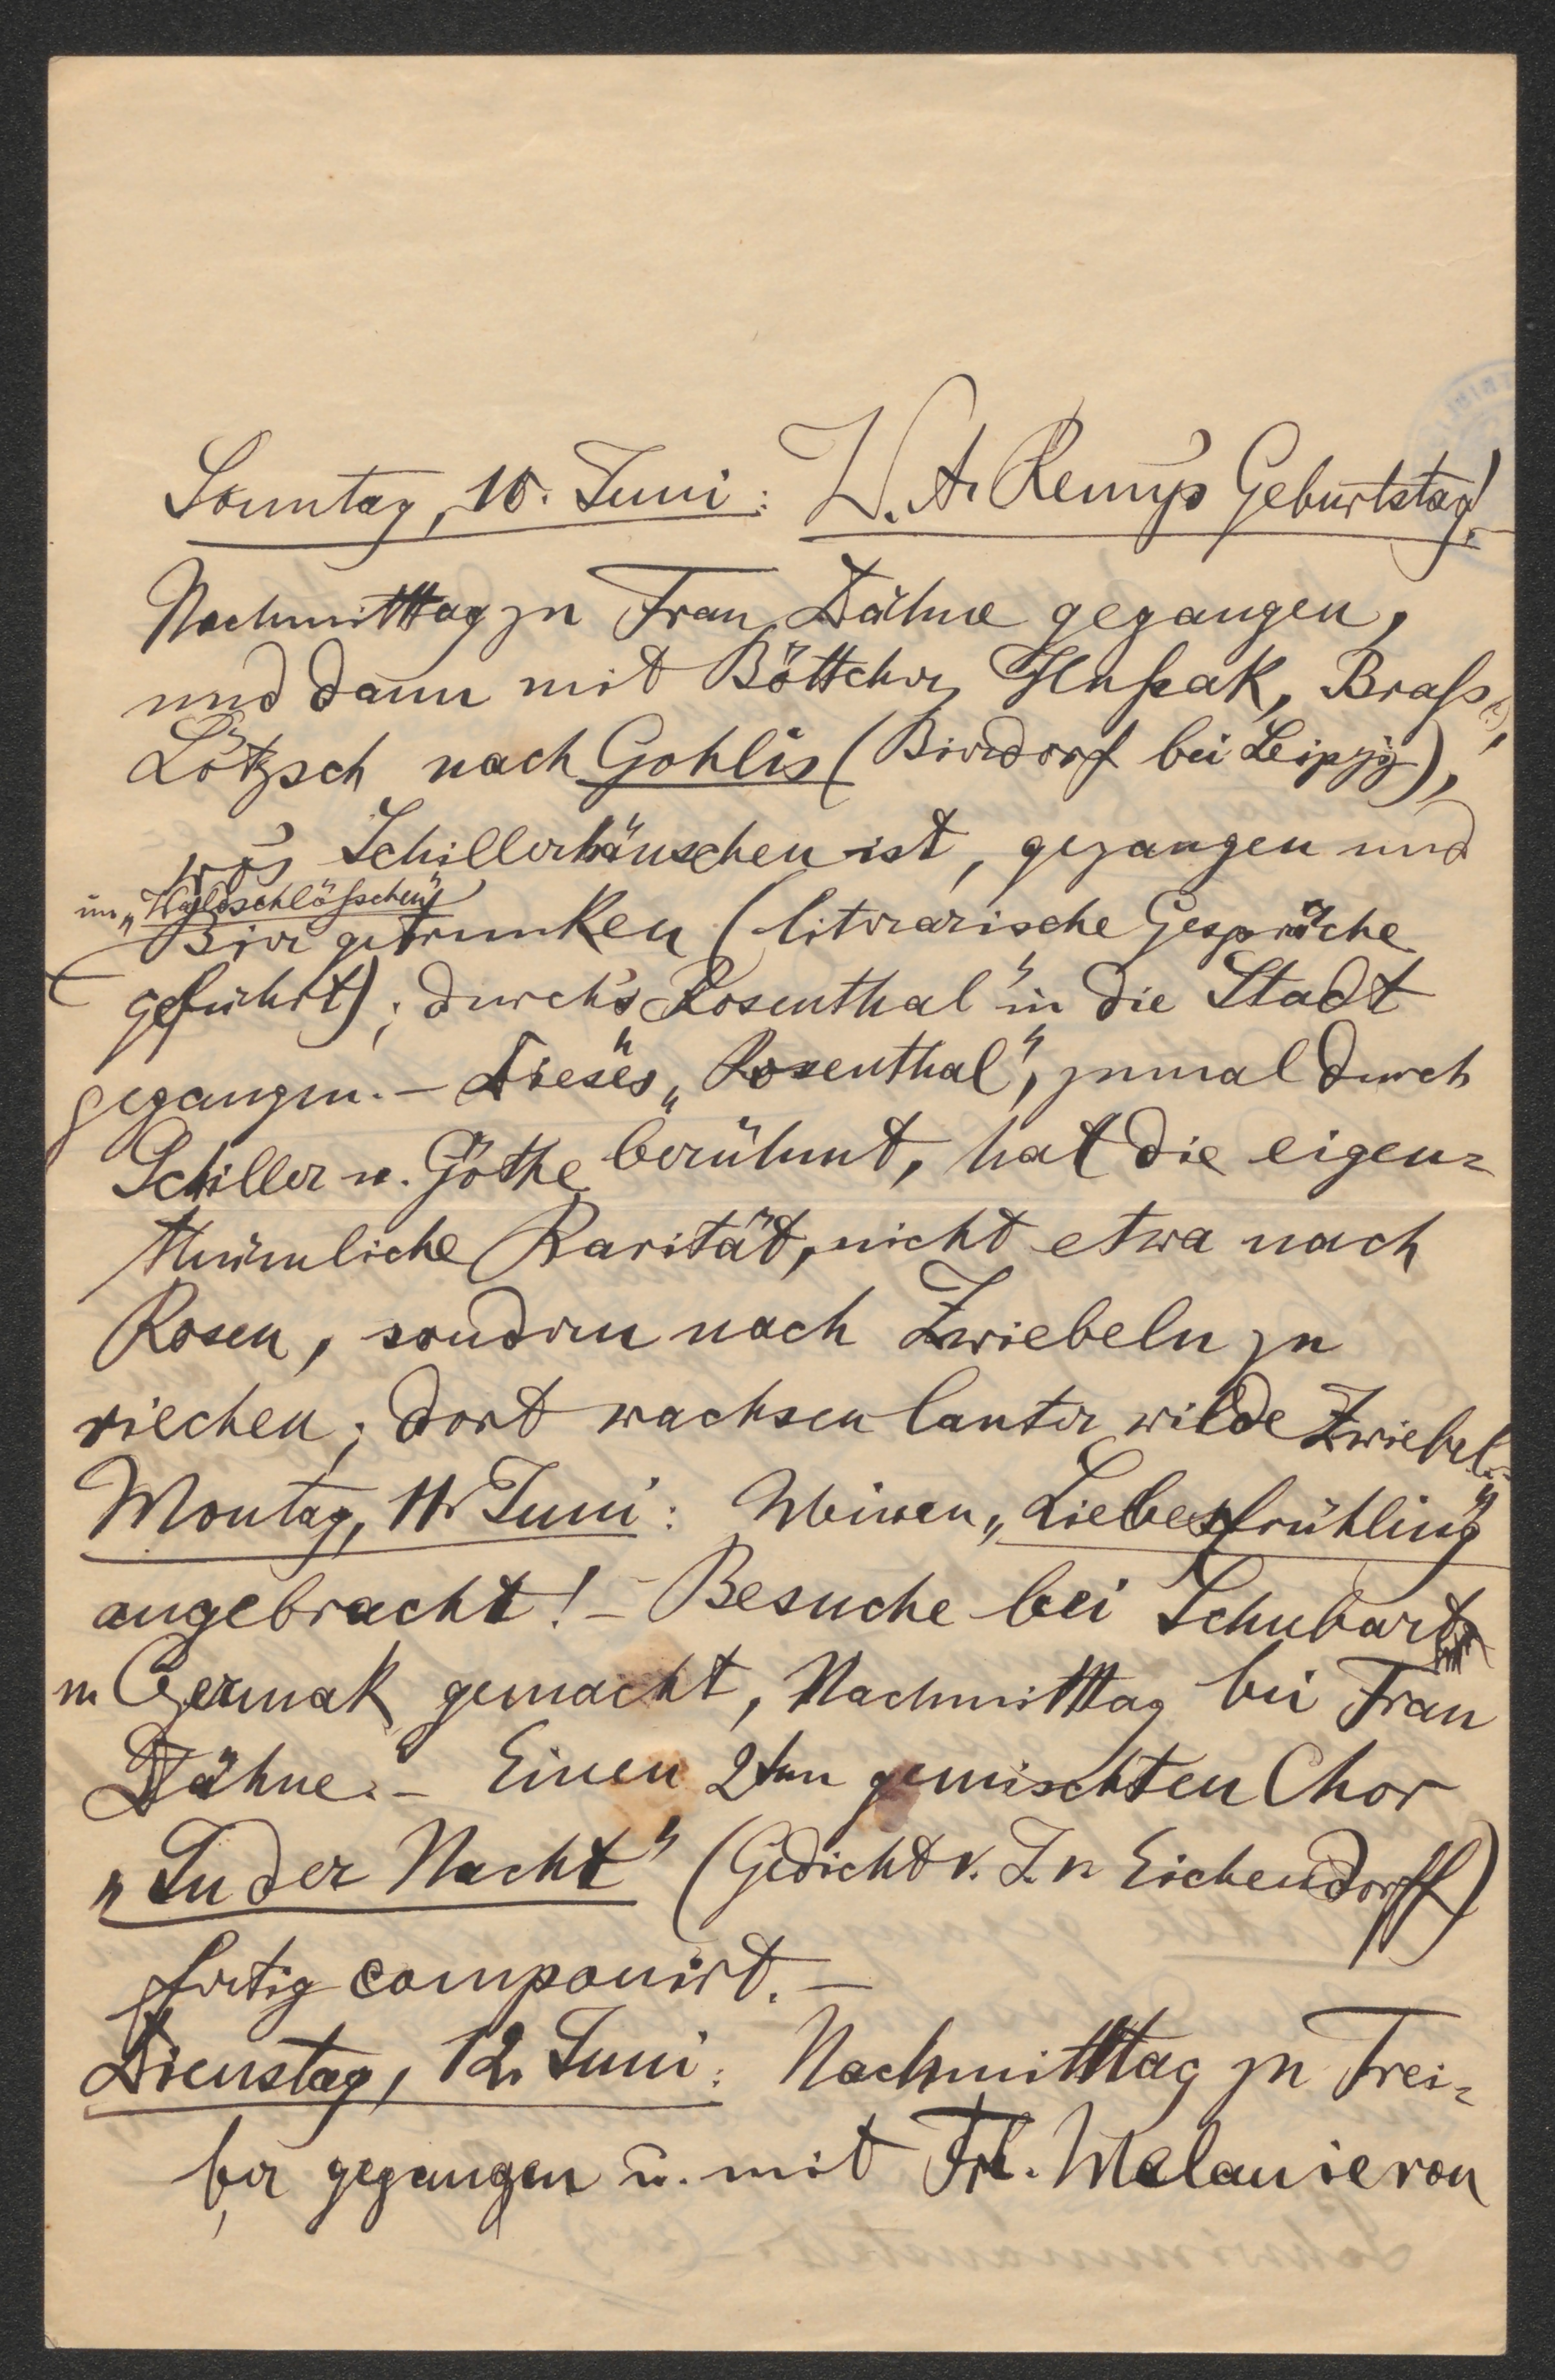 Sonntag, 10. Juni: W. A. Remy's Geburtstag!
Nachmitttag zu Frau Dähne gegangen,
und dann mit Böttcher, Hußak, Braß,
Lötzsch nach Gohlis (Bierdorf bei Leipzig),
wo's Schillerhäuschen ist, gegangen und
im „Waldschlößchen“
Bier getrunken (literarische Gespräche
geführt); durch's Rosenthal“ in die Stadt
gegangen. – Dieses „Rosenthal“, zumal durch
Schiller u. Göthe berühmt, hat die eigen=
thümliche Rarität, nicht etwa nach
Rosen, sondern nach Zwiebeln zu
riechen; dort wachsen lauter wilde Zwiebel.–
Montag, 11. Juni: Meinen „Liebesfrühling“
angebracht! – Besuche bei Schubart
u. Czermak gemacht, Nachmitttag bei Frau
Dähne. – Einen 2ten gemischten Chor
„In der Nacht“ (Gedicht v. J. v. Eichendorff)
fertig componirt. –
Dienstag, 12. Juni: Nachmitttag zu Frei=
ber gegangen u. mit Frl. Melanie von